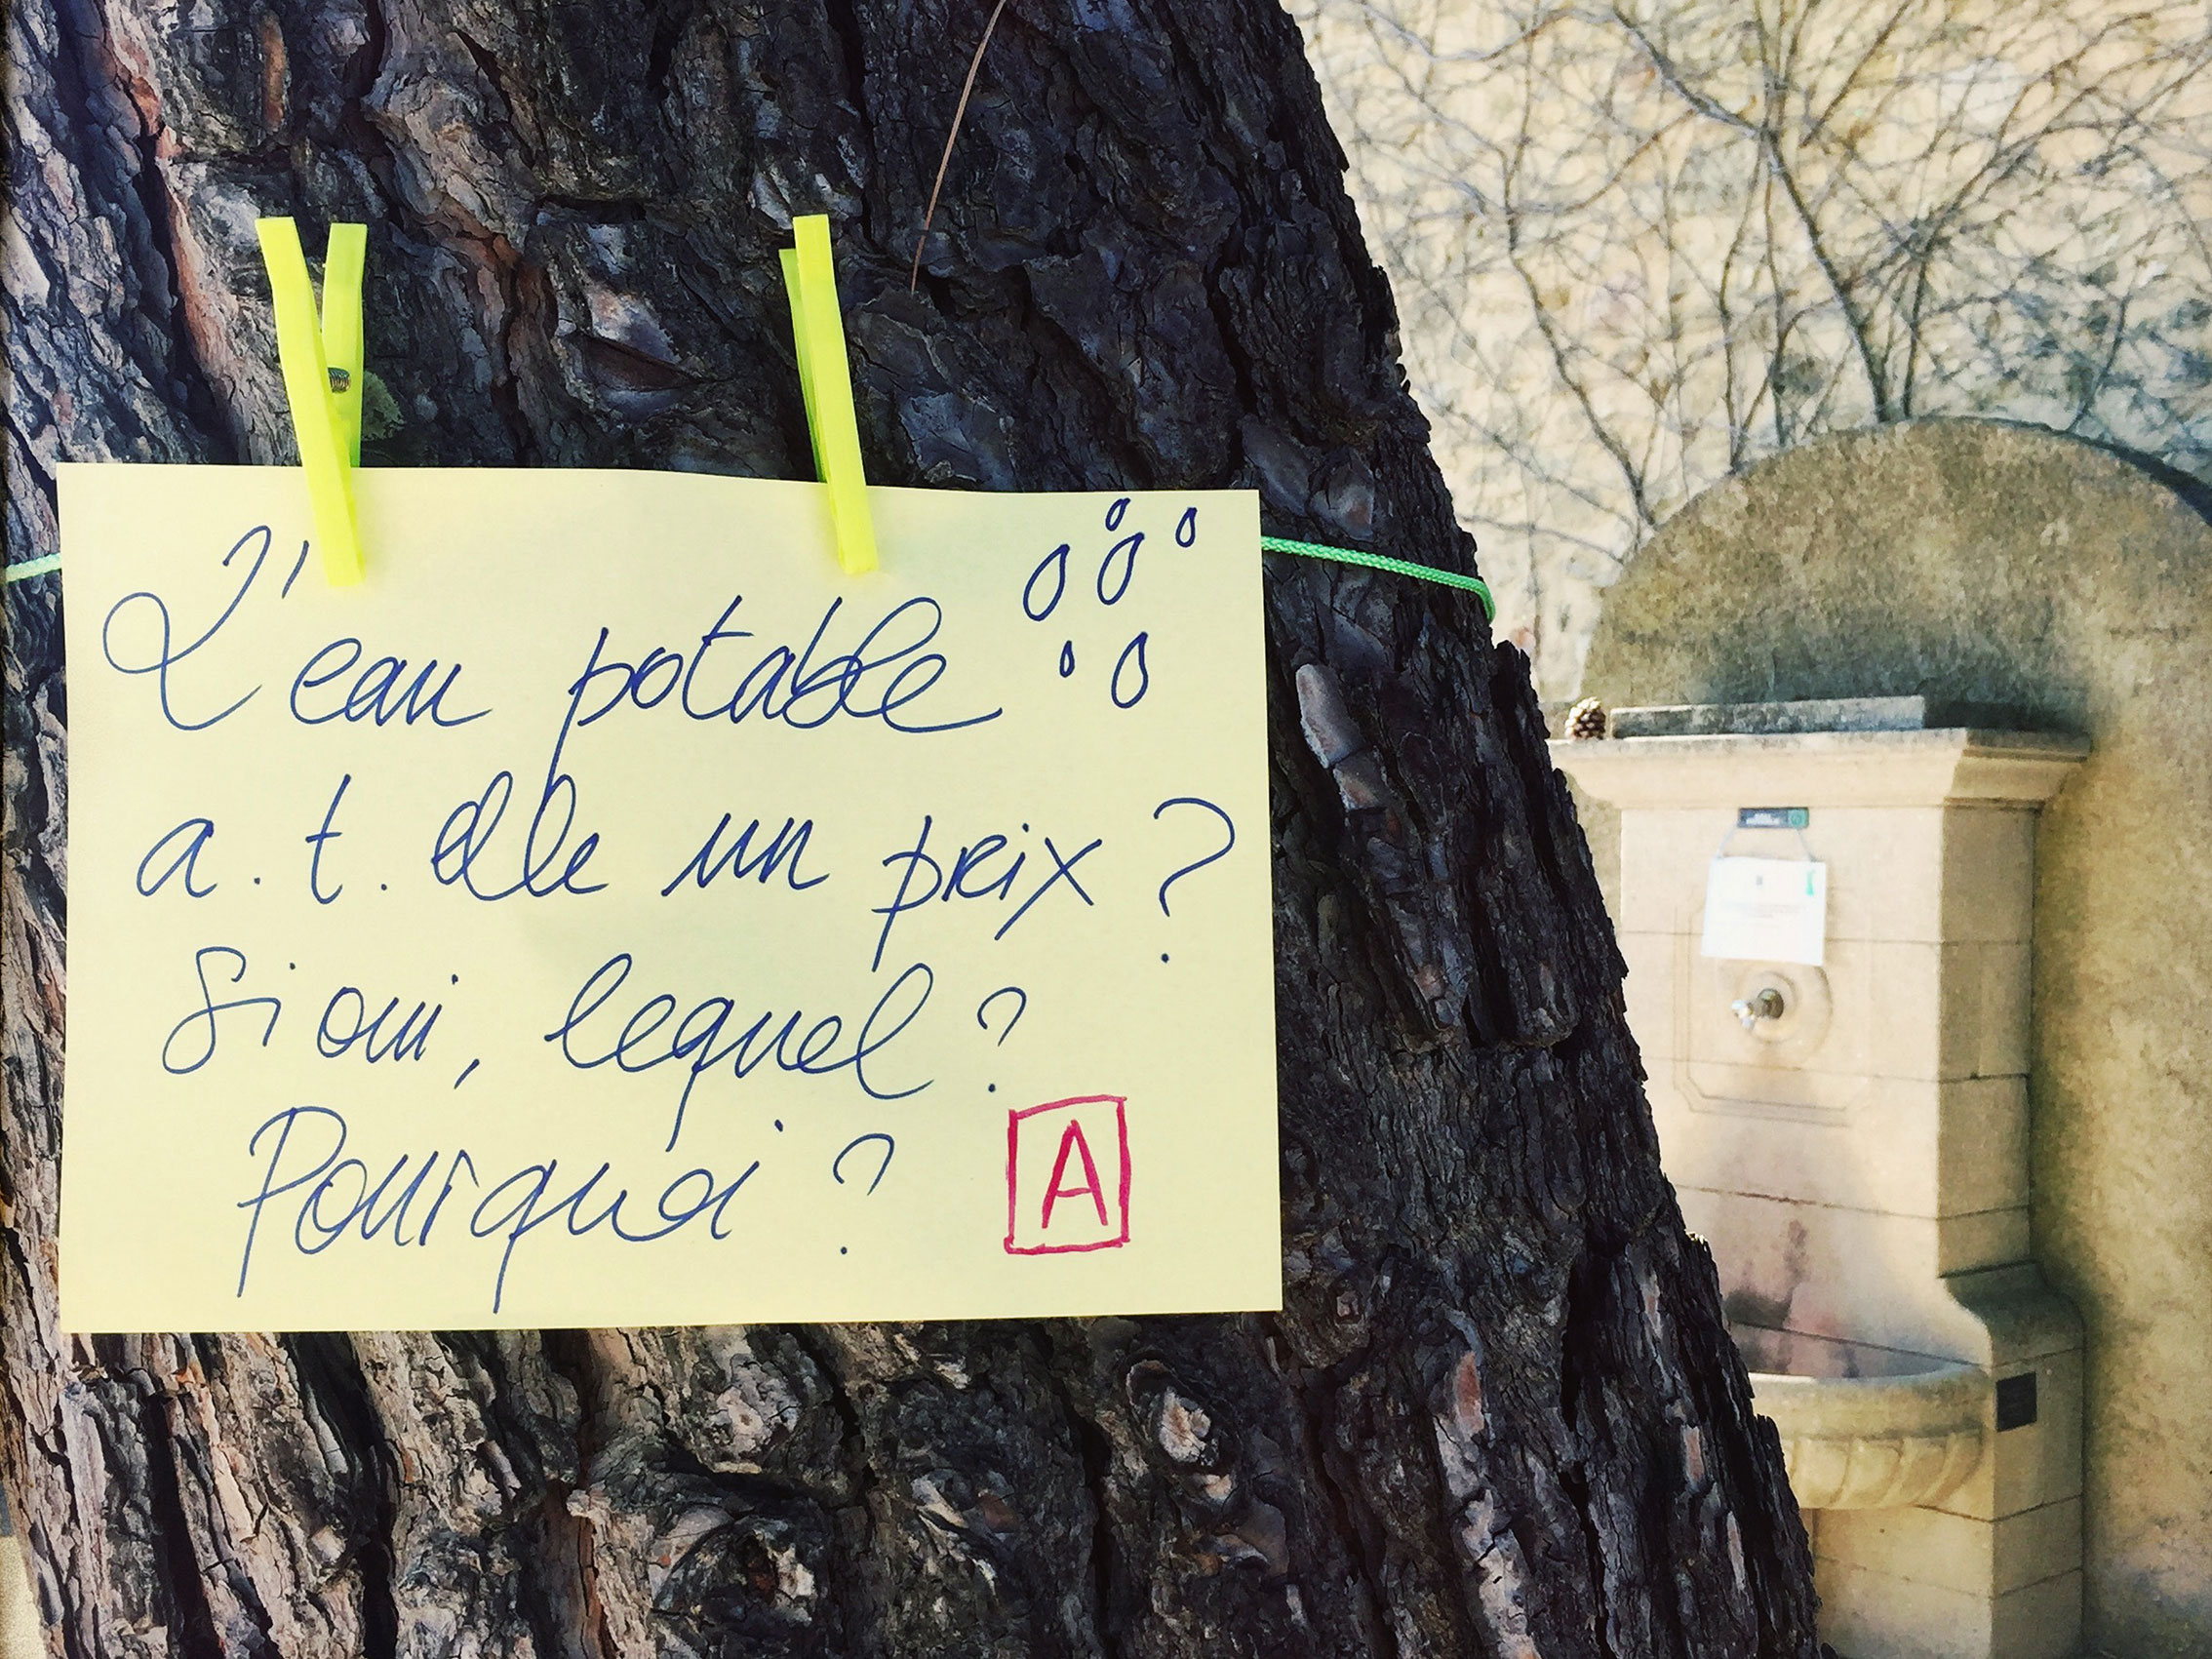 L'eau potable
a.t.elle un prix?
Si oui, lequel?
Pourquoi?
A